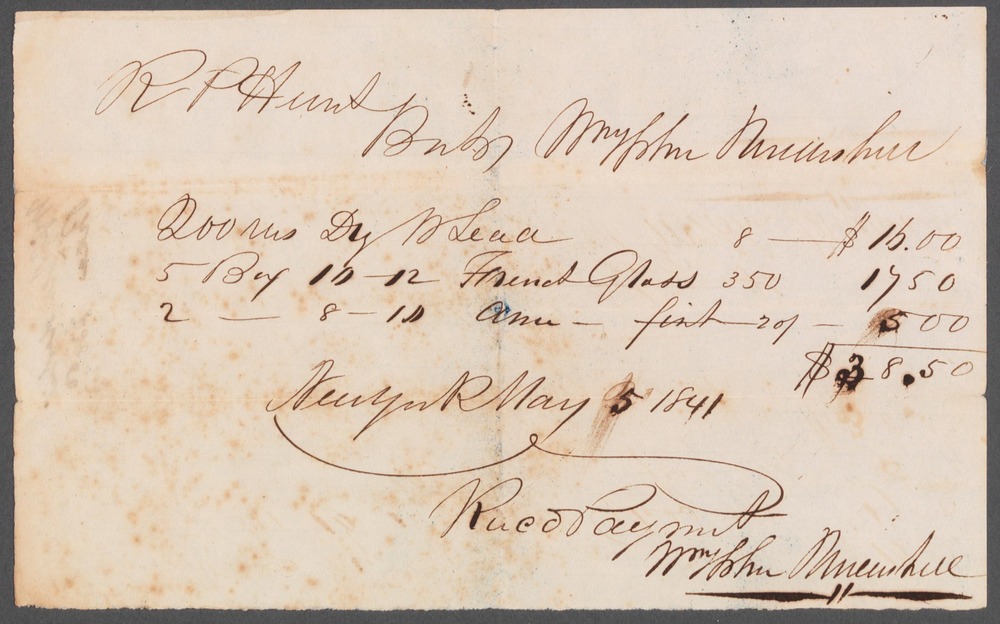 R P Hunt
Bot of Wm & John
200 lbs Dry W Lead 8 — $ 16.00
5 Box 10 – 12 French Glass 350 17 50
2 — 8 – 10 – first — 5 00
$ 38.50
New York May 5 1841
Recd Payment
Wm & John